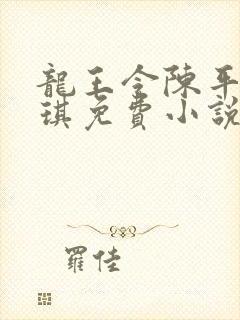 龍王令陳平
琪免費小說
羅佳